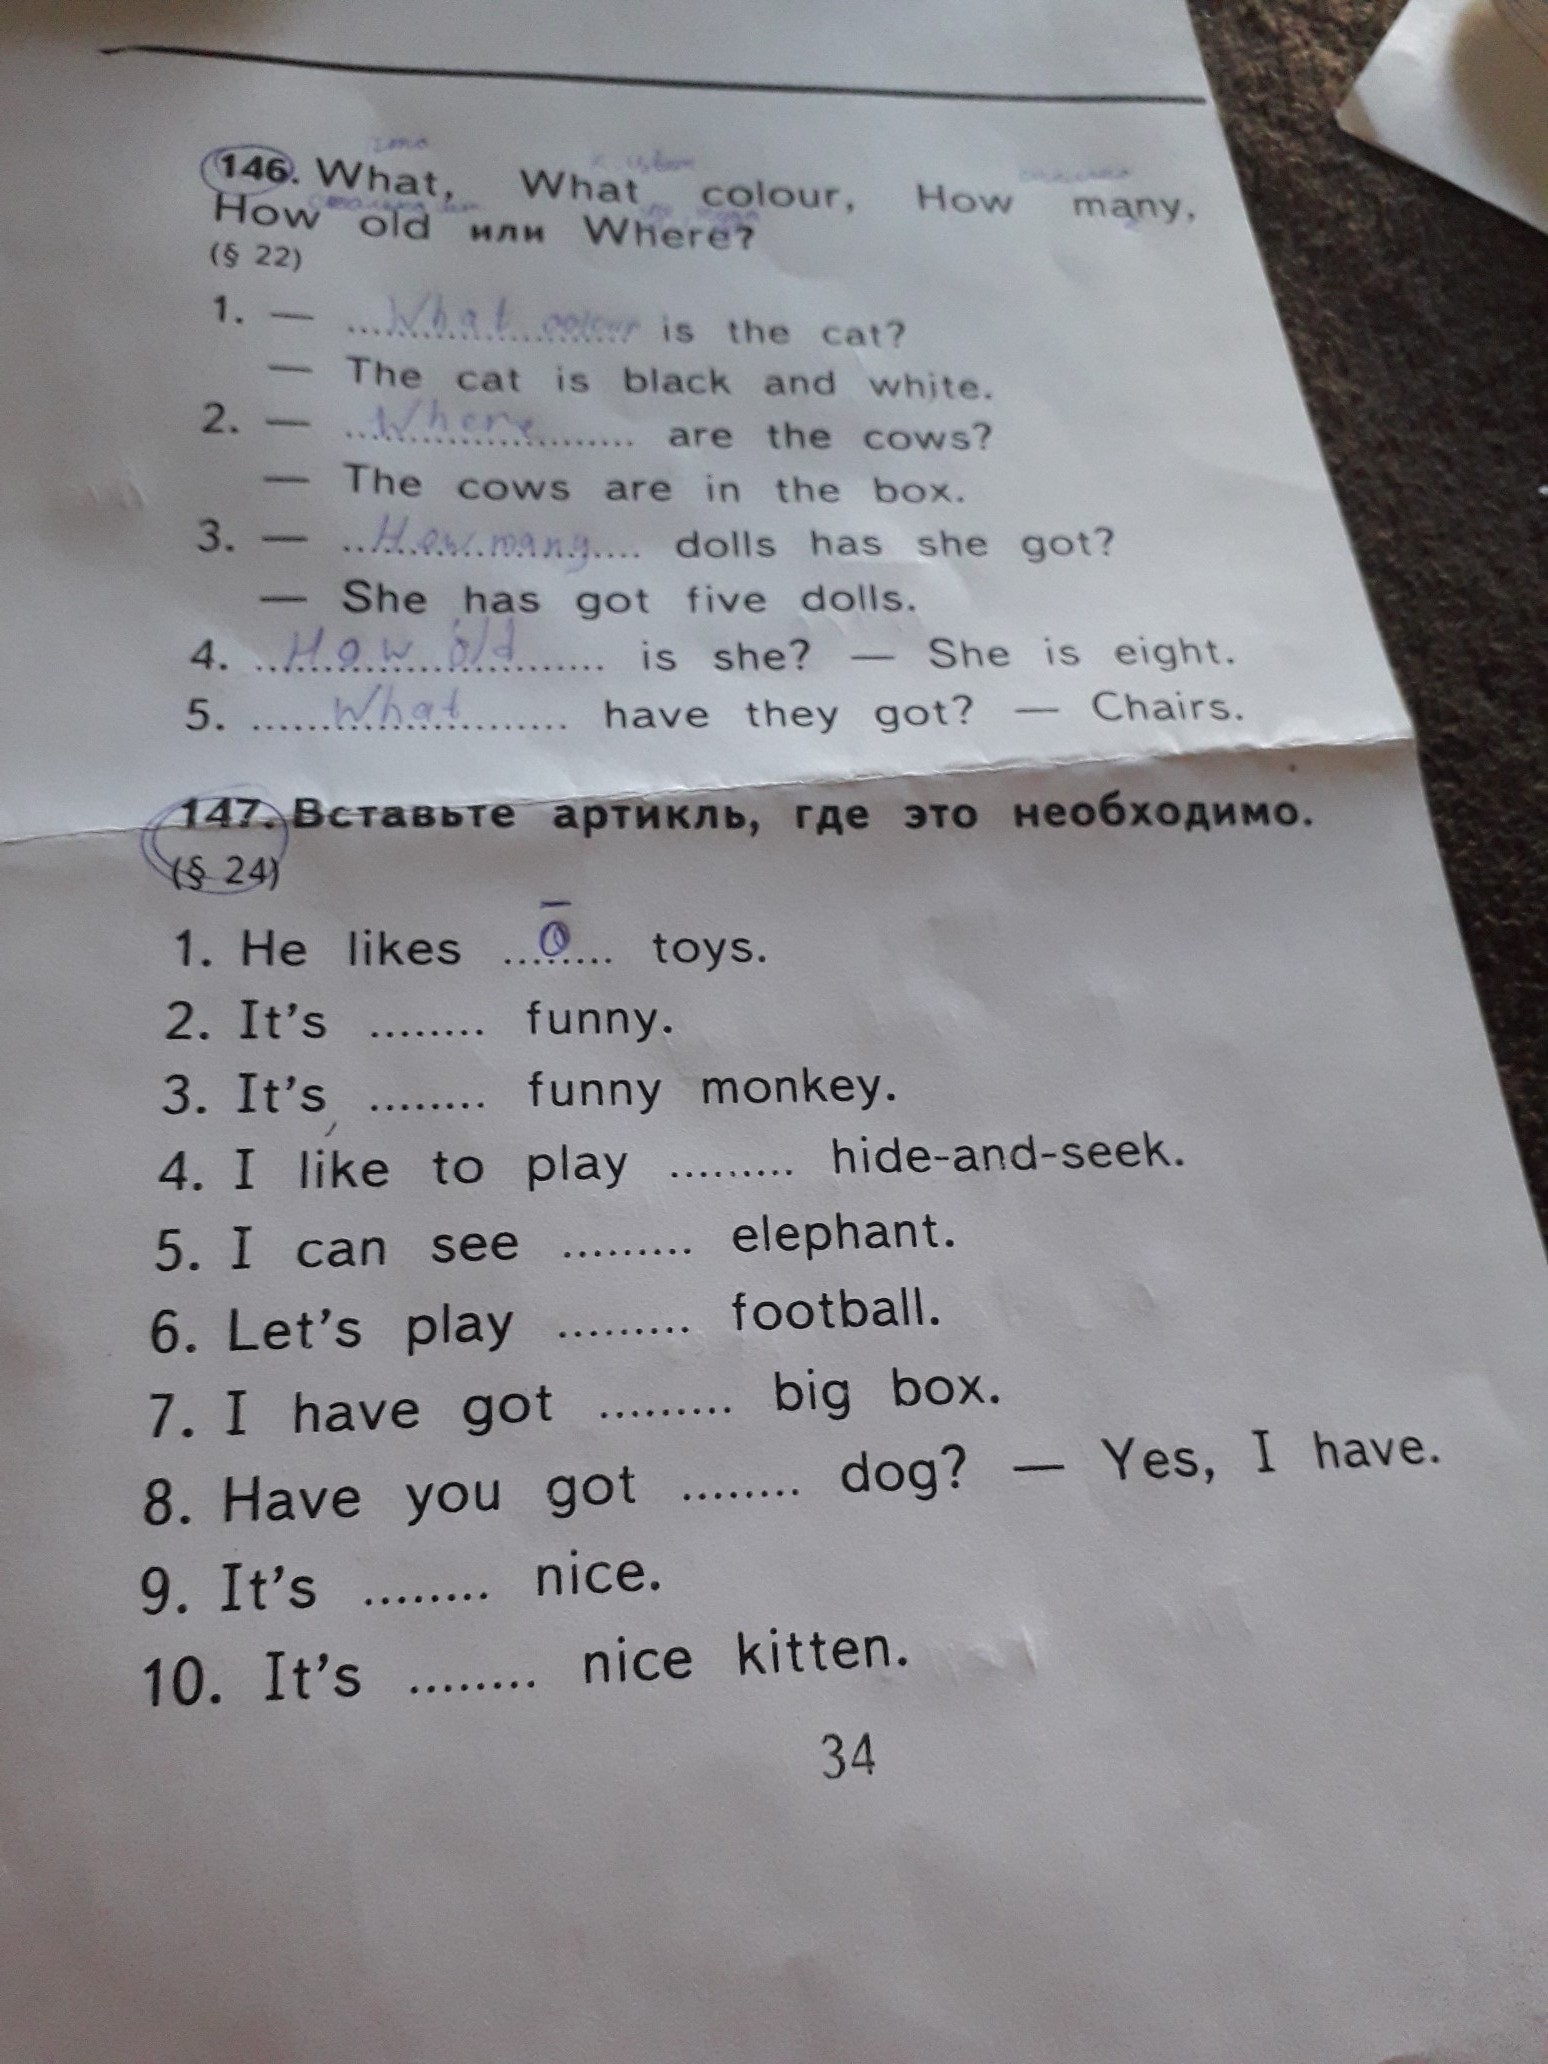 146. What, What colour, How many,
How old или Where?
(§ 22)
1. — What colour is the cat?
— The cat is black and white.
2. — Where are the cows?
— The cows are in the box.
3. — How many dolls has she got?
— She has got five dolls.
4. How old is she? — She is eight.
5. What have they got? — Chairs.
147. Вставьте артикль, где это необходимо.
(§ 24)
1. He likes ........ toys.
2. It's ........ funny.
3. It's ........ funny monkey.
4. I like to play ......... hide-and-seek.
5. I can see ......... elephant.
6. Let's play ......... football.
7. I have got ......... big box.
8. Have you got ........ dog? — Yes, I have.
9. It's ........ nice.
10. It's ........ nice kitten.
34